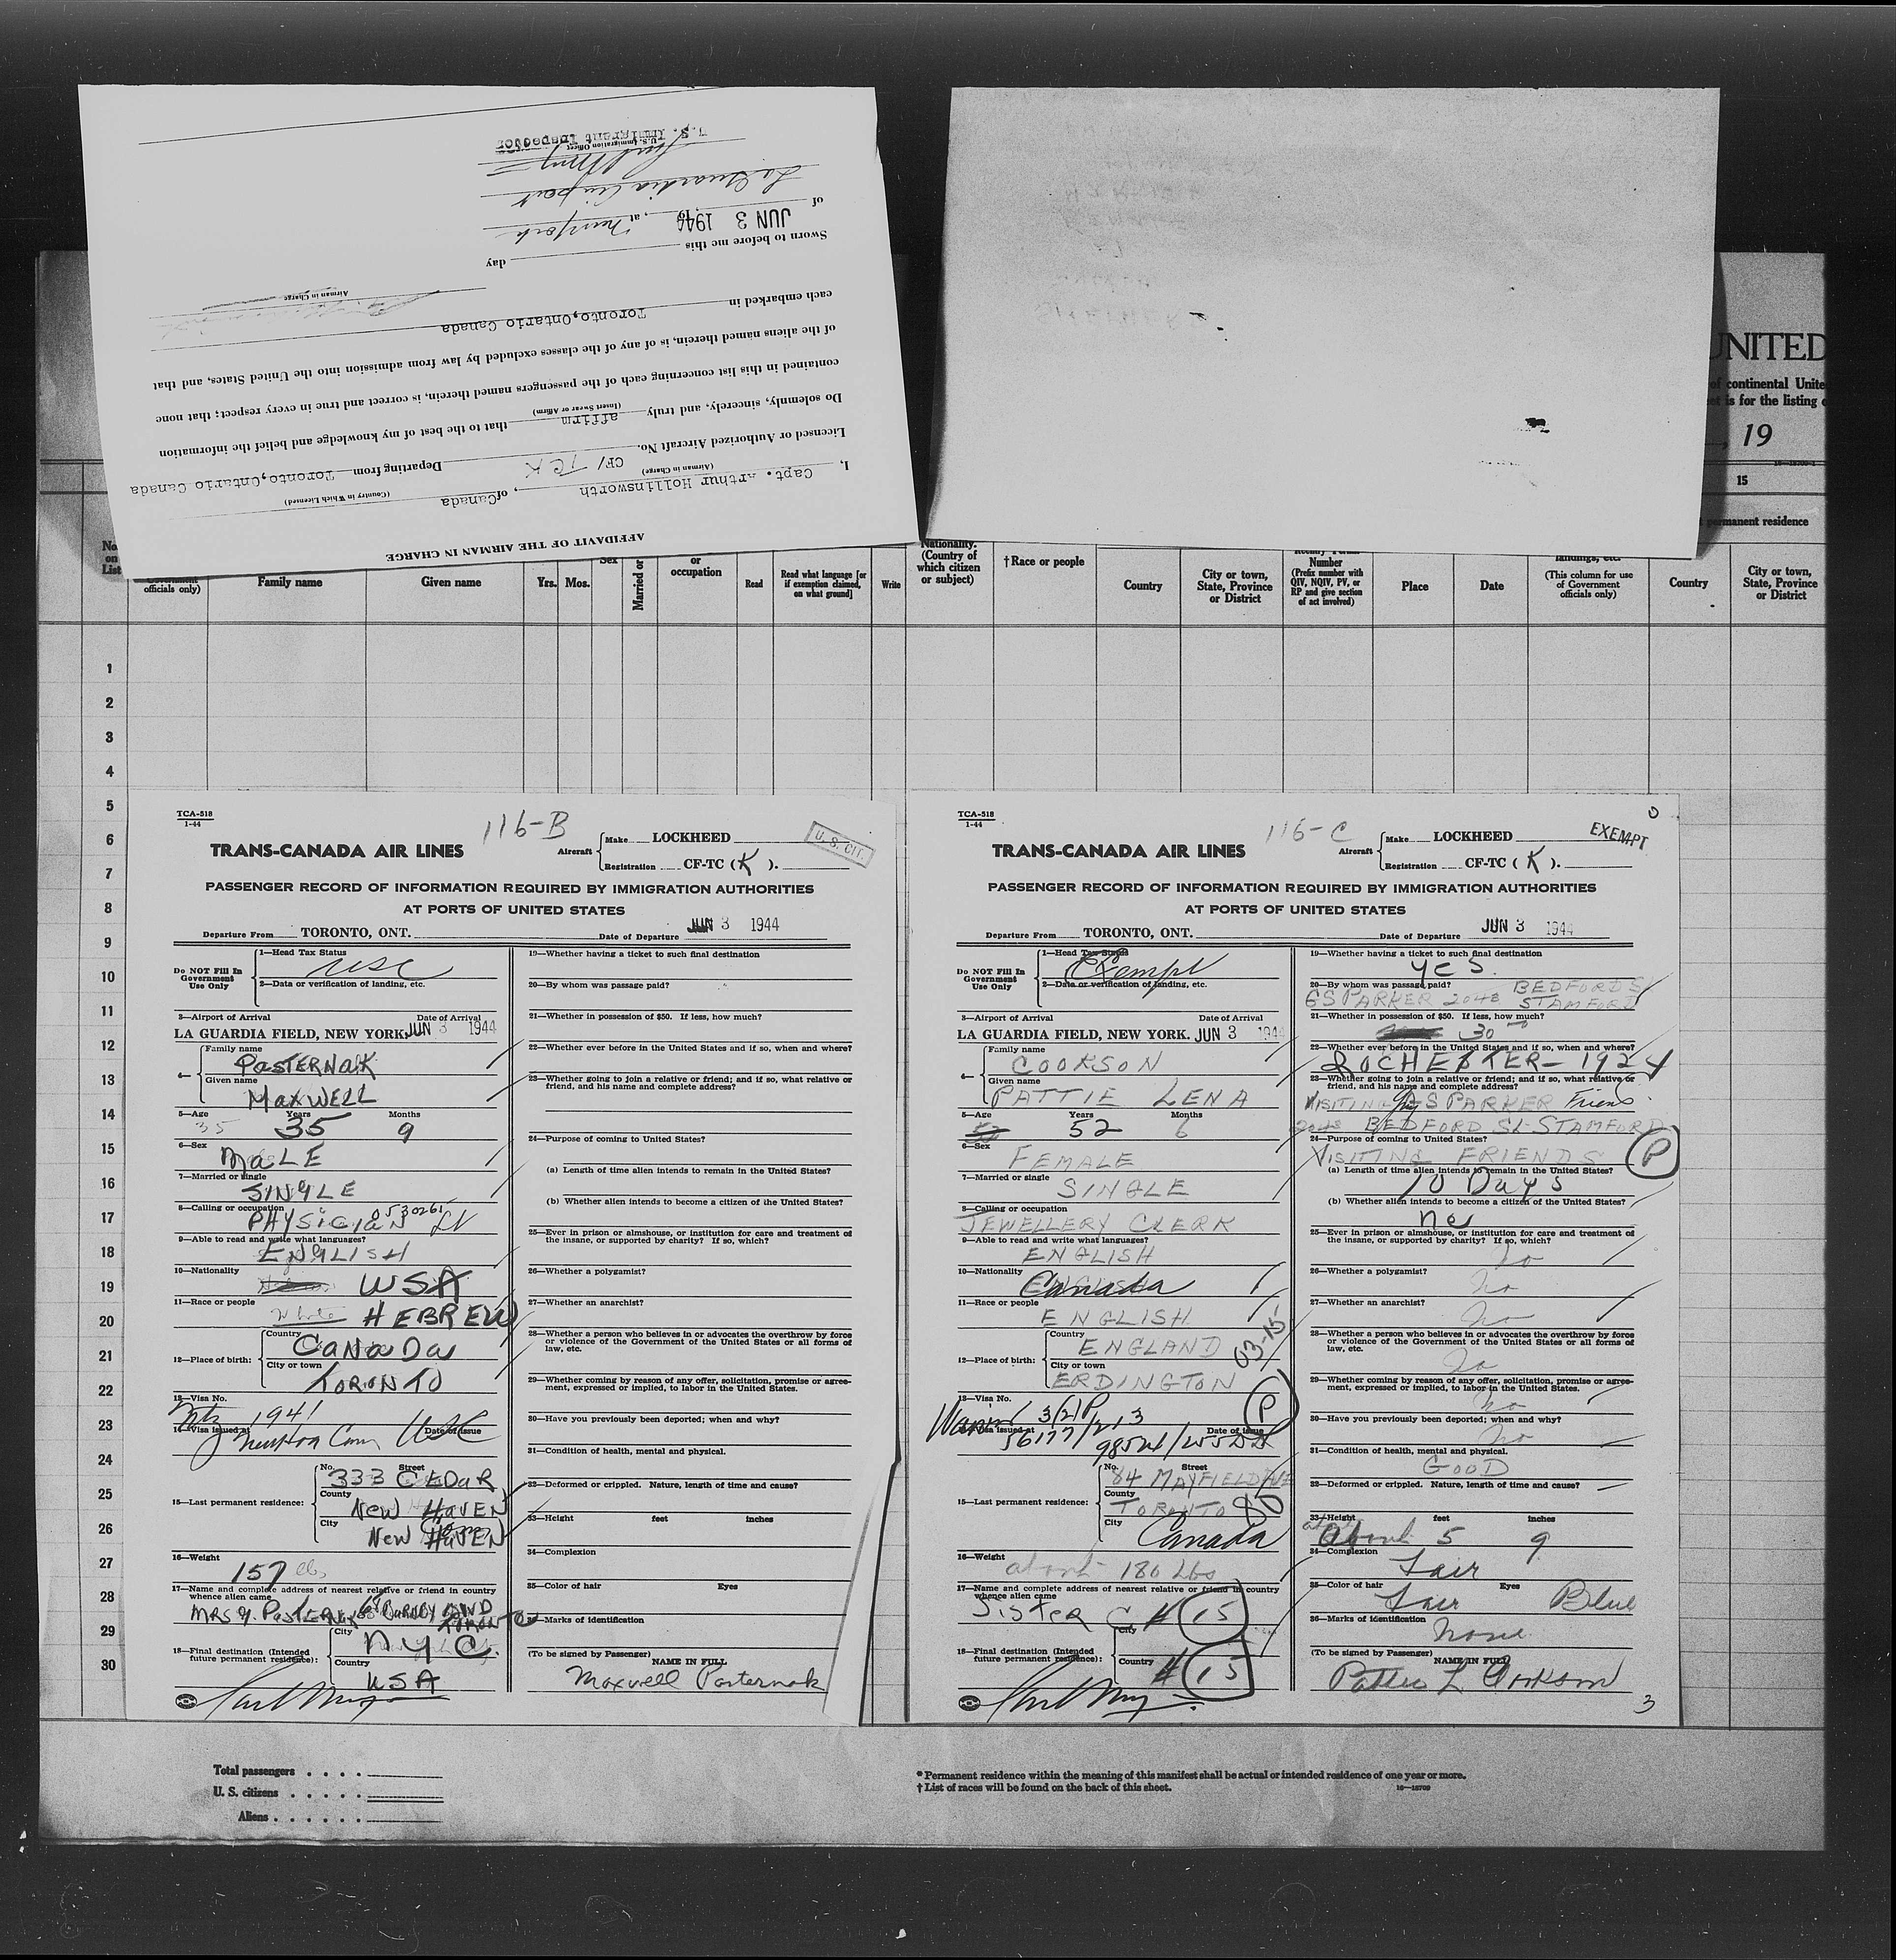 AFFIDAVIT OF THE AIRMAN IN CHARGE
I, Capt. Arthur Hollinsworth, of Canada
(Airman in Charge) (Country in Which Licensed)
Licensed or Authorized Aircraft No. CF/ TCK Departing from Toronto, Ontario Canada
Do solemnly, sincerely, and truly affirm that to the best of my knowledge and belief the information
(Insert Swear or Affirm)
contained in this list concerning each of the passengers named therein, is correct and true in every respect; that none
of the aliens named therein, is of any of the classes excluded by law from admission into the United States, and that
each embarked in Toronto, Ontario Canada
Airman in Charge
Sworn to before me this day
of JUN 3 1944, at New York
La Guardia Airport
U.S. Immigration Officer
U.S. Immigrant Inspector
UNITED
of continental Unite
is for the listing
, 19
15
permanent residence
No. on List
officials only)
Family name
Given name
Yrs.
Mos.
Sex
Married or
or occupation
Read
Read what language [or if exemption claimed, on what ground]
Write
Nationality. (Country of which citizen or subject)
† Race or people
Country
City or town, State, Province or District
Number (Prefix number with QIV, NQIV, PV, or RP and give section of act involved)
Place
Date
landings, etc. (This column for use of Government officials only)
Country
City or town, State, Province or District
1
2
3
4
5
6
7
8
9
10
11
12
13
14
15
16
17
18
19
20
21
22
23
24
25
26
27
28
29
30
TCA-518
1-44
116-B
TRANS-CANADA AIR LINES
Aircraft
Make LOCKHEED
Registration CF-TC (K).
U. S. CIT.
PASSENGER RECORD OF INFORMATION REQUIRED BY IMMIGRATION AUTHORITIES
AT PORTS OF UNITED STATES
Departure From TORONTO, ONT. Date of Departure JUN 3 1944
Do NOT Fill In Government Use Only
1—Head Tax Status
USC
2—Data or verification of landing, etc.
3—Airport of Arrival Date of Arrival
LA GUARDIA FIELD, NEW YORK. JUN 3 1944
4—
Family name
PASTERNAK
Given name
MAXWELL
5—Age Years Months
35 35 9
6—Sex
MALE
7—Married or single
SINGLE
8—Calling or occupation
PHYSICIAN 0530261
9—Able to read and write what languages?
ENGLISH
10—Nationality
USA
11—Race or people
White HEBREW
12—Place of birth:
Country
CANADA
City or town
TORONTO
13—Visa No.
1941
14—Visa issued at Date of issue
USC
15—Last permanent residence:
No. Street
333 CEDAR
County
NEW HAVEN
City
NEW HAVEN
16—Weight
157 lbs
17—Name and complete address of nearest relative or friend in country whence alien came
MRS PASTERNAK TORONTO
18—Final destination (Intended future permanent residence):
City
NYC.
Country
USA
19—Whether having a ticket to such final destination
20—By whom was passage paid?
21—Whether in possession of $50. If less, how much?
22—Whether ever before in the United States and if so, when and where?
23—Whether going to join a relative or friend; and if so, what relative or friend, and his name and complete address?
24—Purpose of coming to United States?
(a) Length of time alien intends to remain in the United States?
(b) Whether alien intends to become a citizen of the United States?
25—Ever in prison or almshouse, or institution for care and treatment of the insane, or supported by charity? If so, which?
26—Whether a polygamist?
27—Whether an anarchist?
28—Whether a person who believes in or advocates the overthrow by force or violence of the Government of the United States or all forms of law, etc.
29—Whether coming by reason of any offer, solicitation, promise or agreement, expressed or implied, to labor in the United States.
30—Have you previously been deported; when and why?
31—Condition of health, mental and physical.
32—Deformed or crippled. Nature, length of time and cause?
33—Height feet inches
34—Complexion
35—Color of hair Eyes
36—Marks of identification
(To be signed by Passenger)
NAME IN FULL
Maxwell Pasternak
TCA-518
1-44
116-C
TRANS-CANADA AIR LINES
Aircraft
Make LOCKHEED
Registration CF-TC (K).
EXEMPT
PASSENGER RECORD OF INFORMATION REQUIRED BY IMMIGRATION AUTHORITIES
AT PORTS OF UNITED STATES
Departure From TORONTO, ONT. Date of Departure JUN 3 1944
Do NOT Fill In Government Use Only
1—Head Tax Status
Exempt
2—Data or verification of landing, etc.
3—Airport of Arrival Date of Arrival
LA GUARDIA FIELD, NEW YORK. JUN 3 1944
4—
Family name
COOKSON
Given name
PATTIE LENA
5—Age Years Months
52 6
6—Sex
FEMALE
7—Married or single
SINGLE
8—Calling or occupation
JEWELLERY CLERK
9—Able to read and write what languages?
ENGLISH
10—Nationality
Canada
11—Race or people
ENGLISH
12—Place of birth:
Country
ENGLAND
City or town
ERDINGTON
03-15
13—Visa No.
P
14—Visa issued at Date of issue
56177/213
15—Last permanent residence:
No. Street
84 MAYFIELD AVE
County
TORONTO
City
Canada
16—Weight
about 180 Lbs
17—Name and complete address of nearest relative or friend in country whence alien came
SISTER C # 15
18—Final destination (Intended future permanent residence):
City
Country
# 15
19—Whether having a ticket to such final destination
YES.
20—By whom was passage paid?
GS PARKER 2048 BEDFORD S STAMFORD
21—Whether in possession of $50. If less, how much?
30
22—Whether ever before in the United States and if so, when and where?
ROCHESTER - 1924
23—Whether going to join a relative or friend; and if so, what relative or friend, and his name and complete address?
VISITING GS PARKER Friend
2048 BEDFORD St STAMFORD
24—Purpose of coming to United States?
VISITING FRIENDS P
(a) Length of time alien intends to remain in the United States?
10 Days
(b) Whether alien intends to become a citizen of the United States?
no
25—Ever in prison or almshouse, or institution for care and treatment of the insane, or supported by charity? If so, which?
No
26—Whether a polygamist?
No
27—Whether an anarchist?
No
28—Whether a person who believes in or advocates the overthrow by force or violence of the Government of the United States or all forms of law, etc.
No
29—Whether coming by reason of any offer, solicitation, promise or agreement, expressed or implied, to labor in the United States.
No
30—Have you previously been deported; when and why?
No
31—Condition of health, mental and physical.
GOOD
32—Deformed or crippled. Nature, length of time and cause?
33—Height feet inches
About 5 9
34—Complexion
Fair
35—Color of hair Eyes
Fair Blue
36—Marks of identification
None
(To be signed by Passenger)
NAME IN FULL
Pattie L Cookson
3
Total passengers
U. S. citizens
Aliens
* Permanent residence within the meaning of this manifest shall be actual or intended residence of one year or more.
† List of races will be found on the back of this sheet.